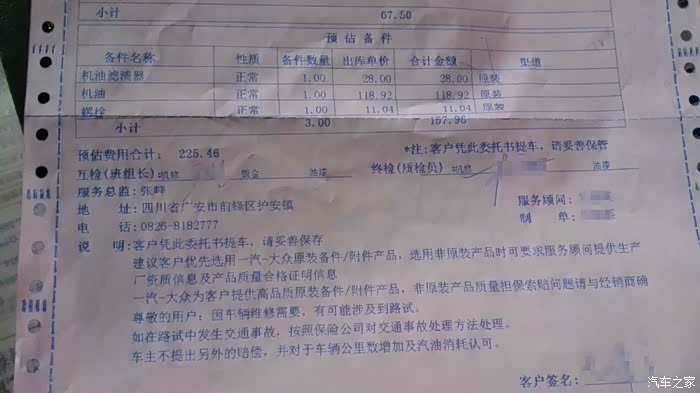 小计 67.50
预估备件
备件名称 性质 备件数量 出库单价 合计金额 渠道
机油滤清器 正常 1.00 28.00 28.00 原装
机油 正常 1.00 118.92 118.92 原装
螺栓 正常 1.00 11.04 11.04 原装
小计 3.00 157.96
预估费用合计: 225.46 *注: 客户凭此委托书提车, 请妥善保管
互检(班组长) 机修 钣金 油漆 终检(质检员) 机修 油漆
服务总监: 张峰 服务顾问:
地 址: 四川省广安市前锋区护安镇 制 单:
电 话: 0826-8182777
说 明: 客户凭此委托书提车, 请妥善保存
建议客户优先选用一汽-大众原装备件/附件产品, 选用非原装产品时可要求服务顾问提供生产
厂资质信息及产品质量合格证明信息
一汽-大众为客户提供高品质原装备件/附件产品, 非原装产品质量担保索赔问题请与经销商确
尊敬的用户: 因车辆维修需要, 有可能涉及到路试。
如在路试中发生交通事故, 按照保险公司对交通事故处理方法处理。
车主不提出另外的赔偿, 并对于车辆公里数增加及汽油消耗认可。
客户签名:
汽车之家